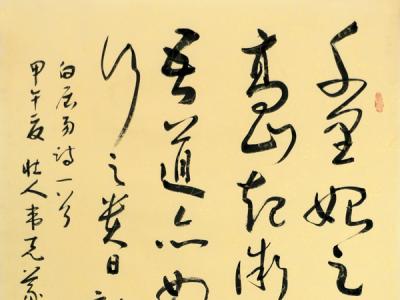 千里始足
高山起微
吾道亦如
行之贵日
白居易诗一首
甲午夏 壮人韦克義